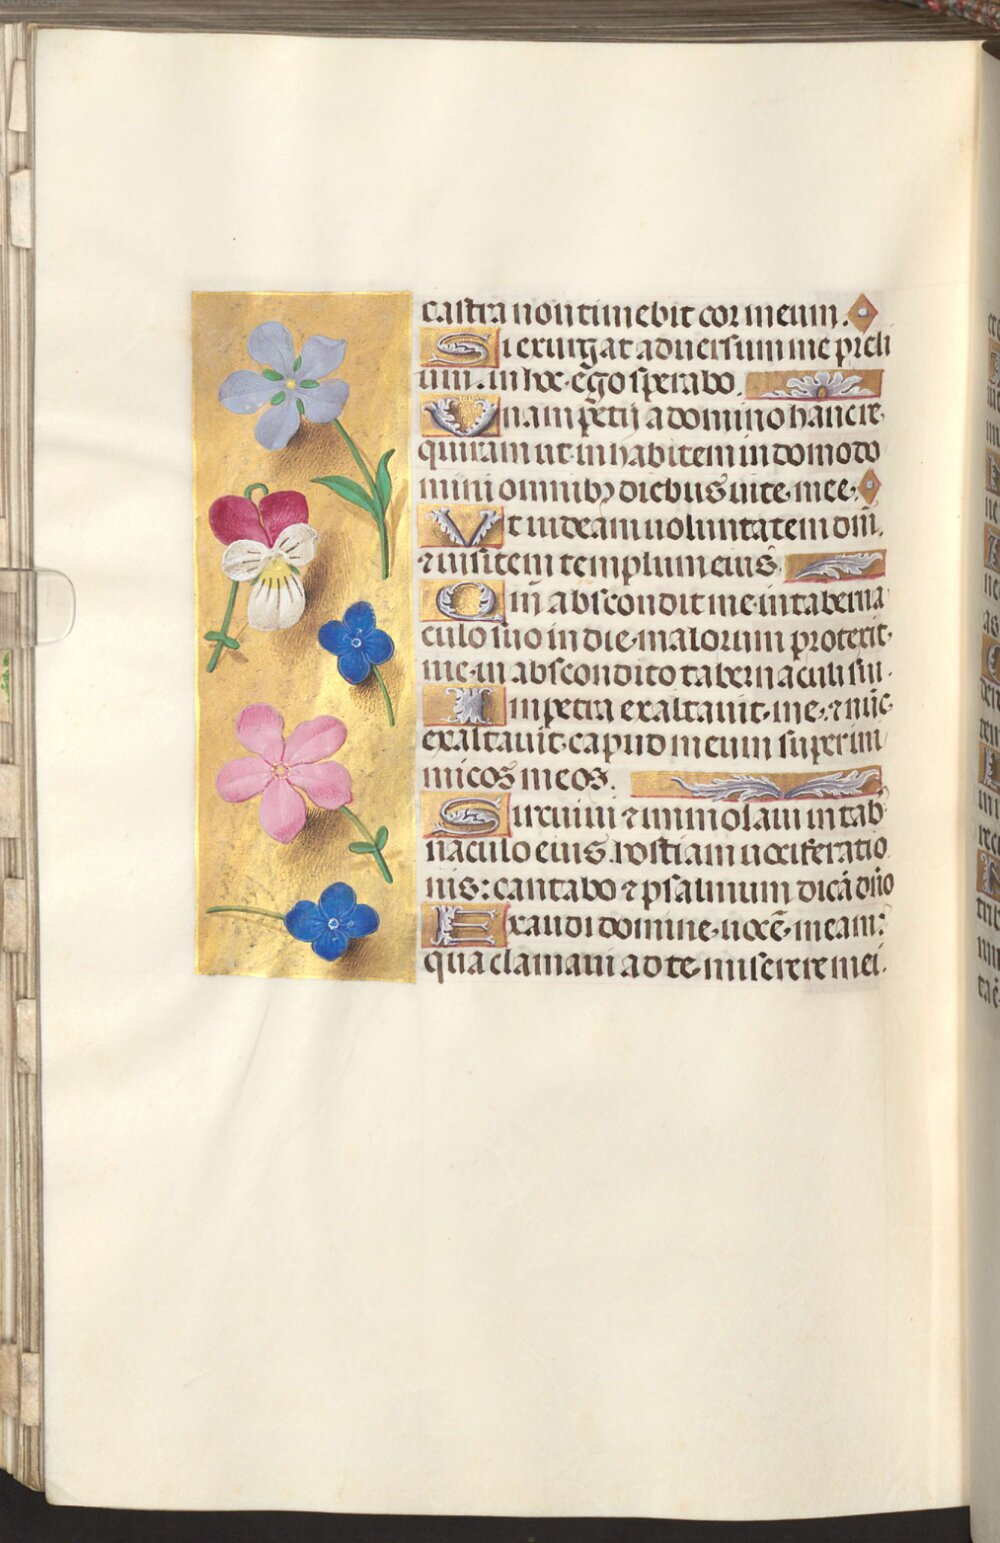 castra non timebit cor meum.
Si exurgat adversum me preli
um. in hoc ego sperabo.
Unam petii a domino hanc re
quiram ut inhabitem in domo do
mini omnibꝫ diebus vite mee.
Ut videam voluntatem dn̄i.
⁊ visitem templum eius
Qm̄ abscondit me in taberna
culo suo in die malorum protexit
me in abscondito tabernaculi sui.
In petra exaltavit me. ⁊ nūc
exaltavit capud meum super ini
micos meos.
Circuivi ⁊ immolavi in tab
naculo eius hostiam vociferatio
nis: cantabo ⁊ psalmum dicā dn̄o
Exaudi domine vocē meam:
qua clamavi ad te miserere mei.